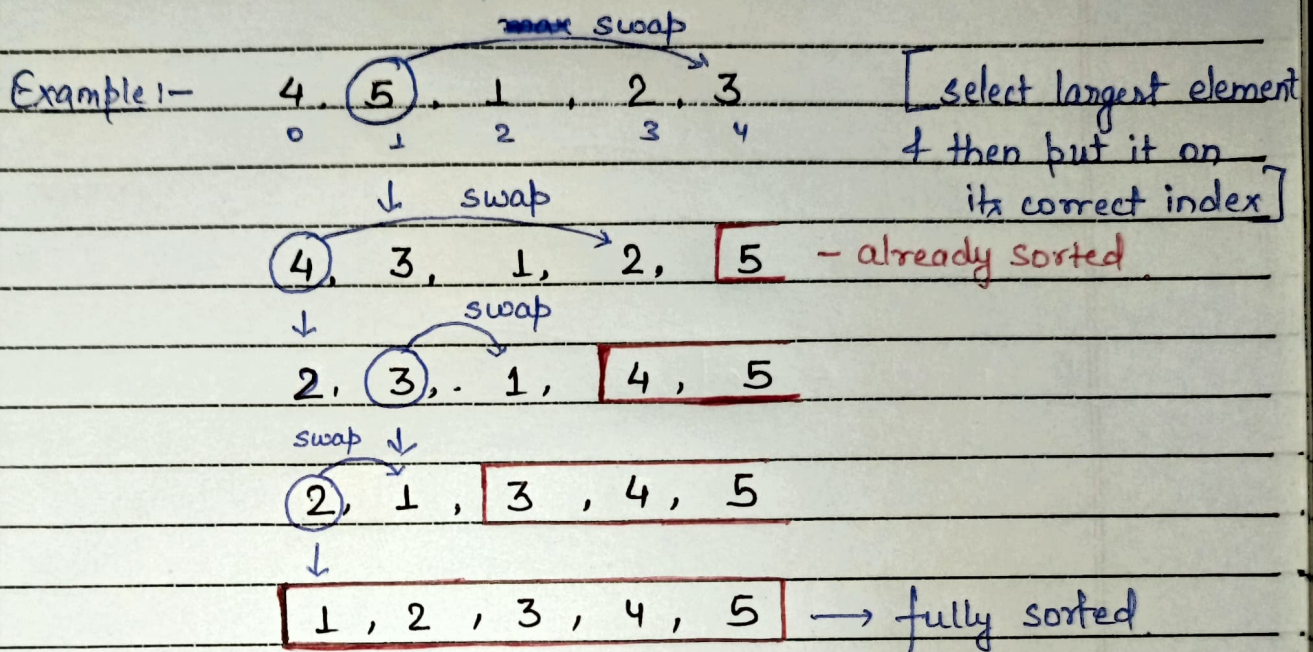 swap
Example :- 4, 5, 1, 2, 3 [select largest element
0 1 2 3 4 & then put it on
its correct index]
↓ swap
4, 3, 1, 2, 5 - already sorted.
↓ swap
2, 3, 1, 4, 5
swap ↓
2, 1, 3, 4, 5
↓
1, 2, 3, 4, 5 → fully sorted.